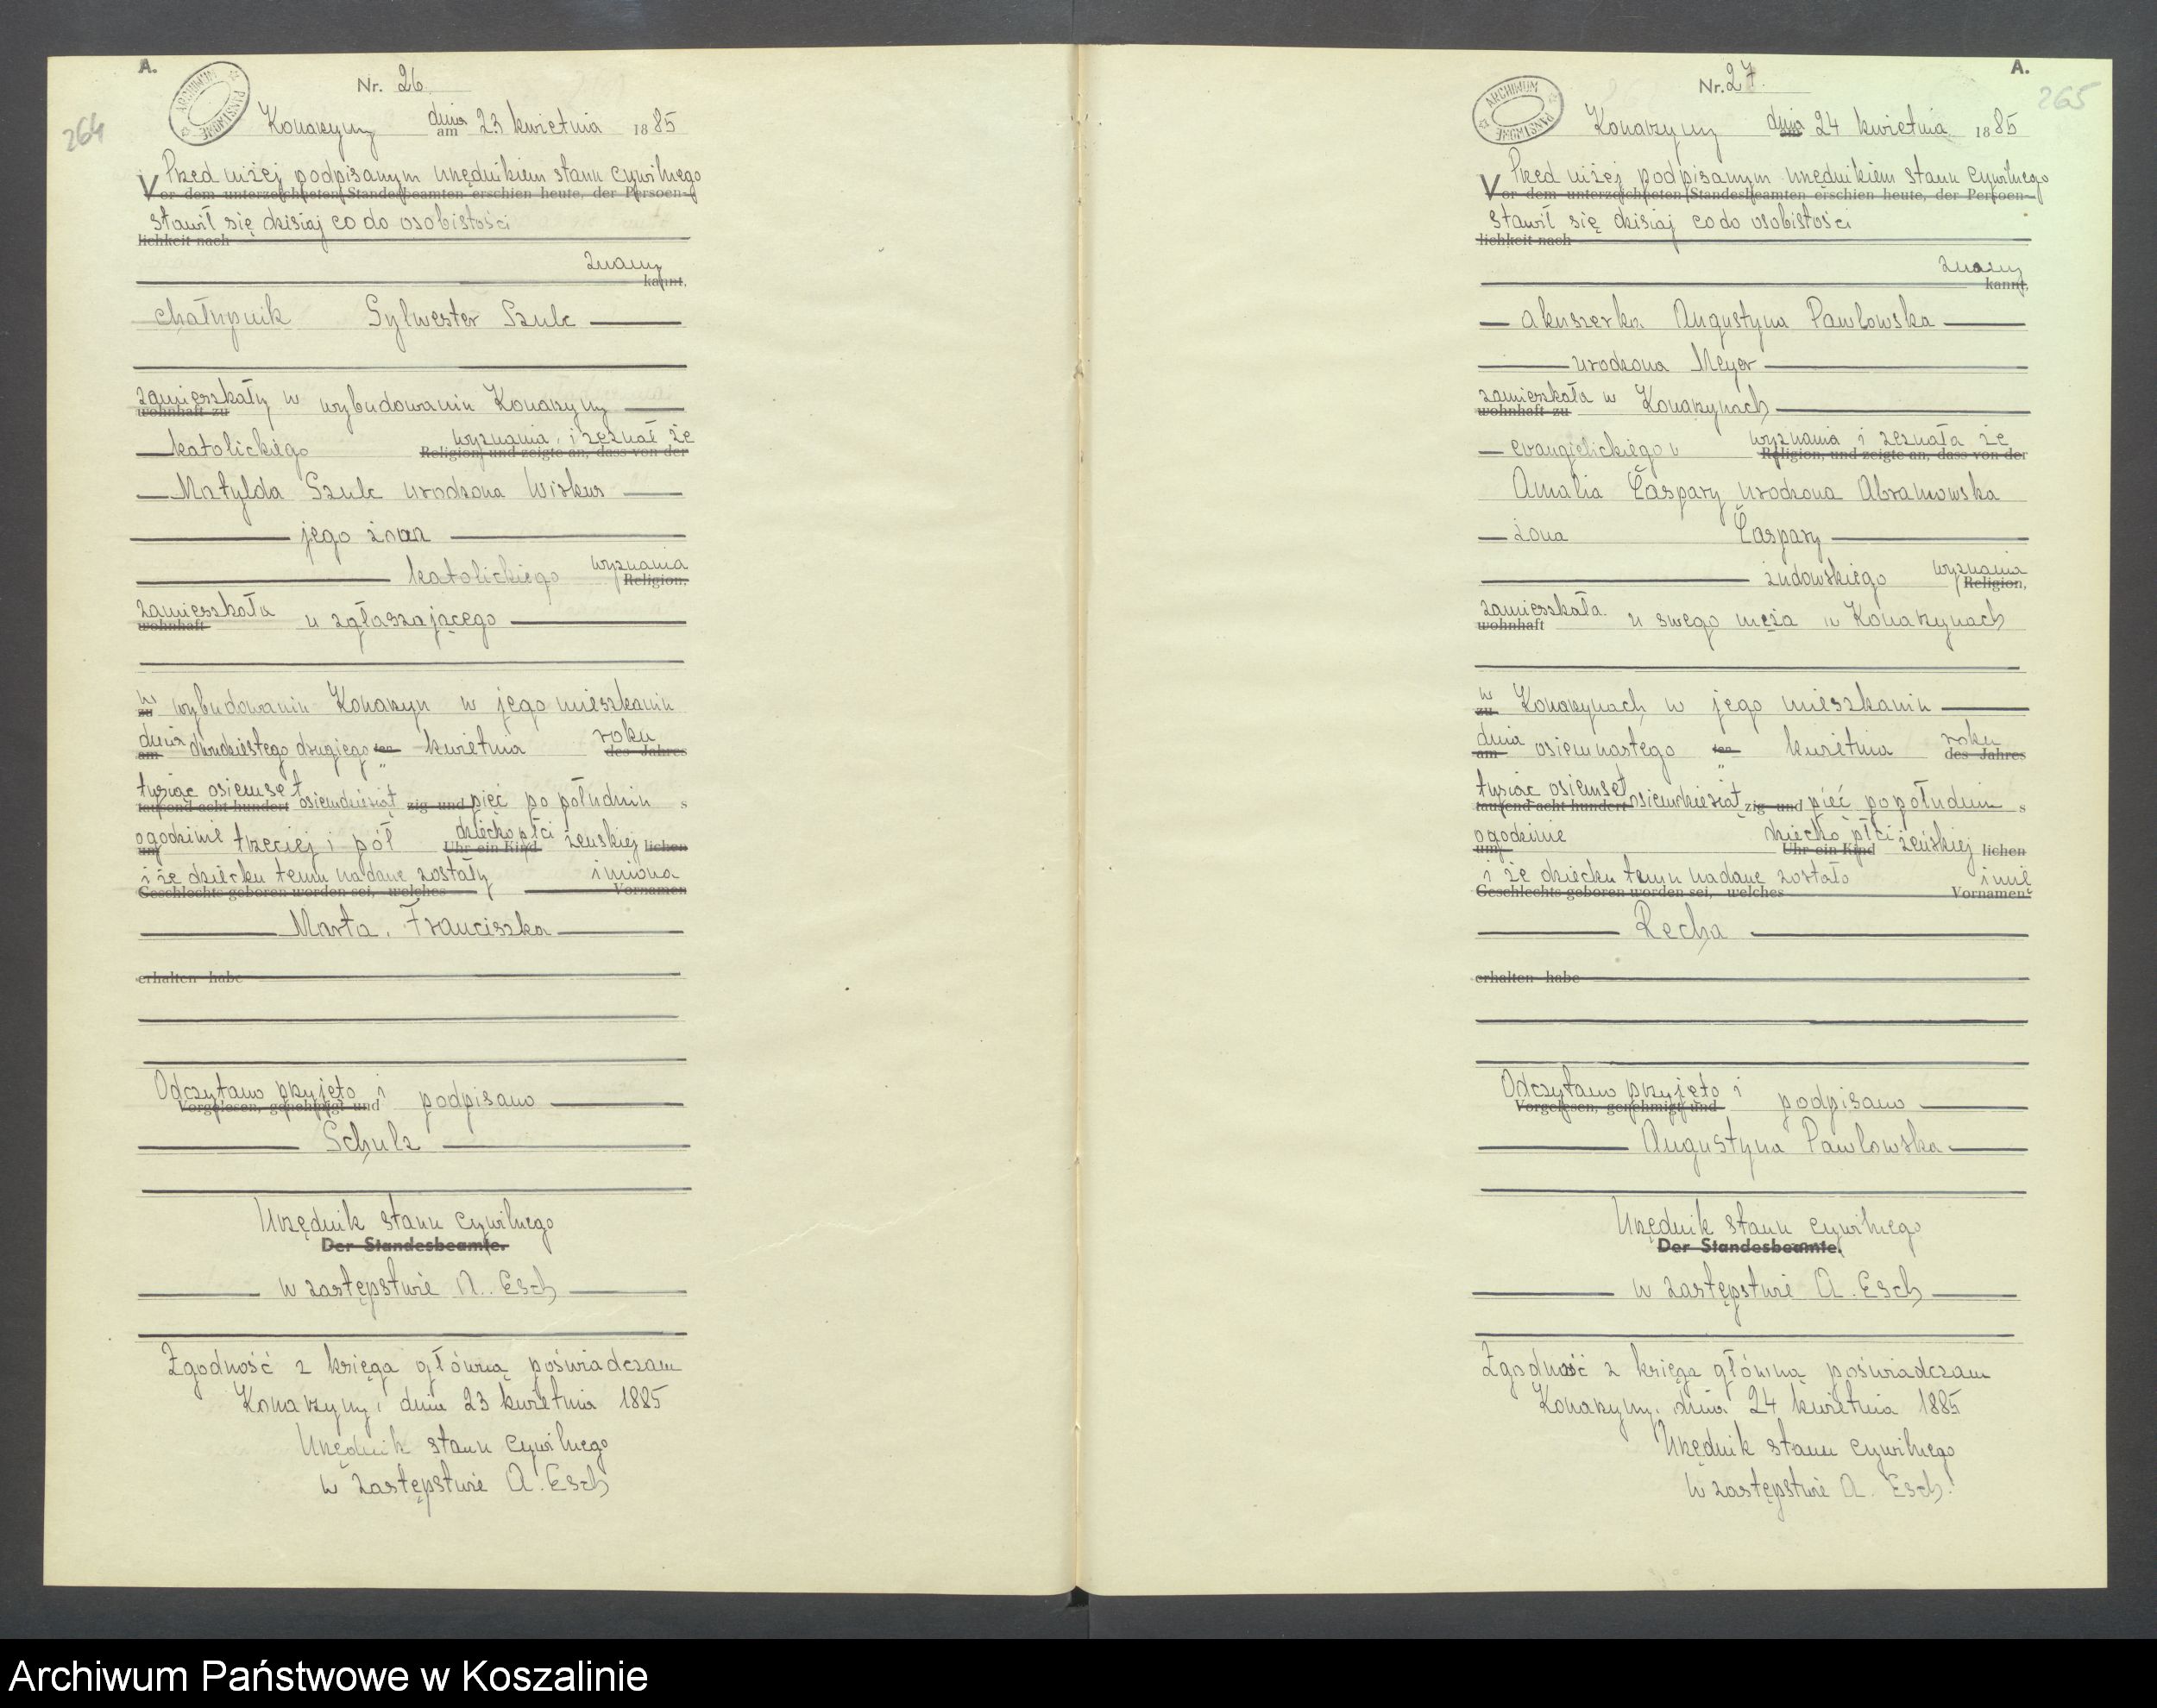 A.
ARCHIWUM PAŃSTWOWE
Nr. 26.
264
Konarzyny dnia am 23 kwietnia 1885
Przed niżej podpisanym urzędnikiem stanu cywilnego
Vor dem unterzeichneten Standesbeamten erschien heute, der Persoen-
stawił się dzisiaj co do osobistości
lichkeit nach
znany
kannt,
chałupnik Sylwester Szulc
zamieszkały w wybudowaniu Konarzyny
wohnhaft zu
katolickiego wyznania i zeznał że
Religion, und zeigte an, dass von der
Matylda Szulc urodzona Wirkus
jego żona
katolickiego wyznania
Religion,
zamieszkała u zgłaszającego
wohnhaft
w wybudowaniu Konarzyn w jego mieszkaniu
zu
dnia dwudziestego drugiego kwietnia roku
am ten des Jahres
tysiąc osiemset osiemdziesiąt pięć po południu s
tausend acht hundert zig und
o godzinie trzeciej i pół dziecko płci żeńskiej lichen
um Uhr ein Kind
i że dziecku temu nadane zostały imiona
Geschlechts geboren worden sei, welches Vornamen
Marta, Franciszka
erhalten habe
Odczytano przyjęto i podpisano
Vorgelesen, genehmigt und
Schulz
Urzędnik stanu cywilnego
Der Standesbeamte.
w zastępstwie A. Esch
Zgodność z księgą główną poświadczam
Konarzyny, dnia 23 kwietnia 1885
Urzędnik stanu cywilnego
w zastępstwie A. Esch
A.
ARCHIWUM PAŃSTWOWE
Nr. 27.
265
Konarzyny dnia 24 kwietnia 1885
Przed niżej podpisanym urzędnikiem stanu cywilnego
Vor dem unterzeichneten Standesbeamten erschien heute, der Persoen-
stawił się dzisiaj co do osobistości
lichkeit nach
znany
kannt,
akuszerka Augustyna Pawlowska
urodzona Meyer
zamieszkała w Konarzynach
wohnhaft zu
ewangielickiego wyznania i zeznała że
Religion, und zeigte an, dass von der
Amalia Caspary urodzona Abramowska
żona Caspary
żydowskiego wyznania
Religion,
zamieszkała u swego męża w Konarzynach
wohnhaft
w Konarzynach w jego mieszkaniu
zu
dnia osiemnastego kwietnia roku
am ten des Jahres
tysiąc osiemset osiemdziesiąt pięć popołudniu s
tausend acht hundert zig und
o godzinie dziecko płci żeńskiej lichen
um Uhr ein Kind
i że dziecku temu nadane zostało imię
Geschlechts geboren worden sei, welches Vornamen
Recha
erhalten habe
Odczytano przyjęto i podpisano
Vorgelesen, genehmigt und
Augustyna Pawlowska
Urzędnik stanu cywilnego
Der Standesbeamte.
w zastępstwie A. Esch
Zgodność z księgą główną poświadczam
Konarzyny, dnia 24 kwietnia 1885
Urzędnik stanu cywilnego
w zastępstwie A. Esch.
Archiwum Państwowe w Koszalinie